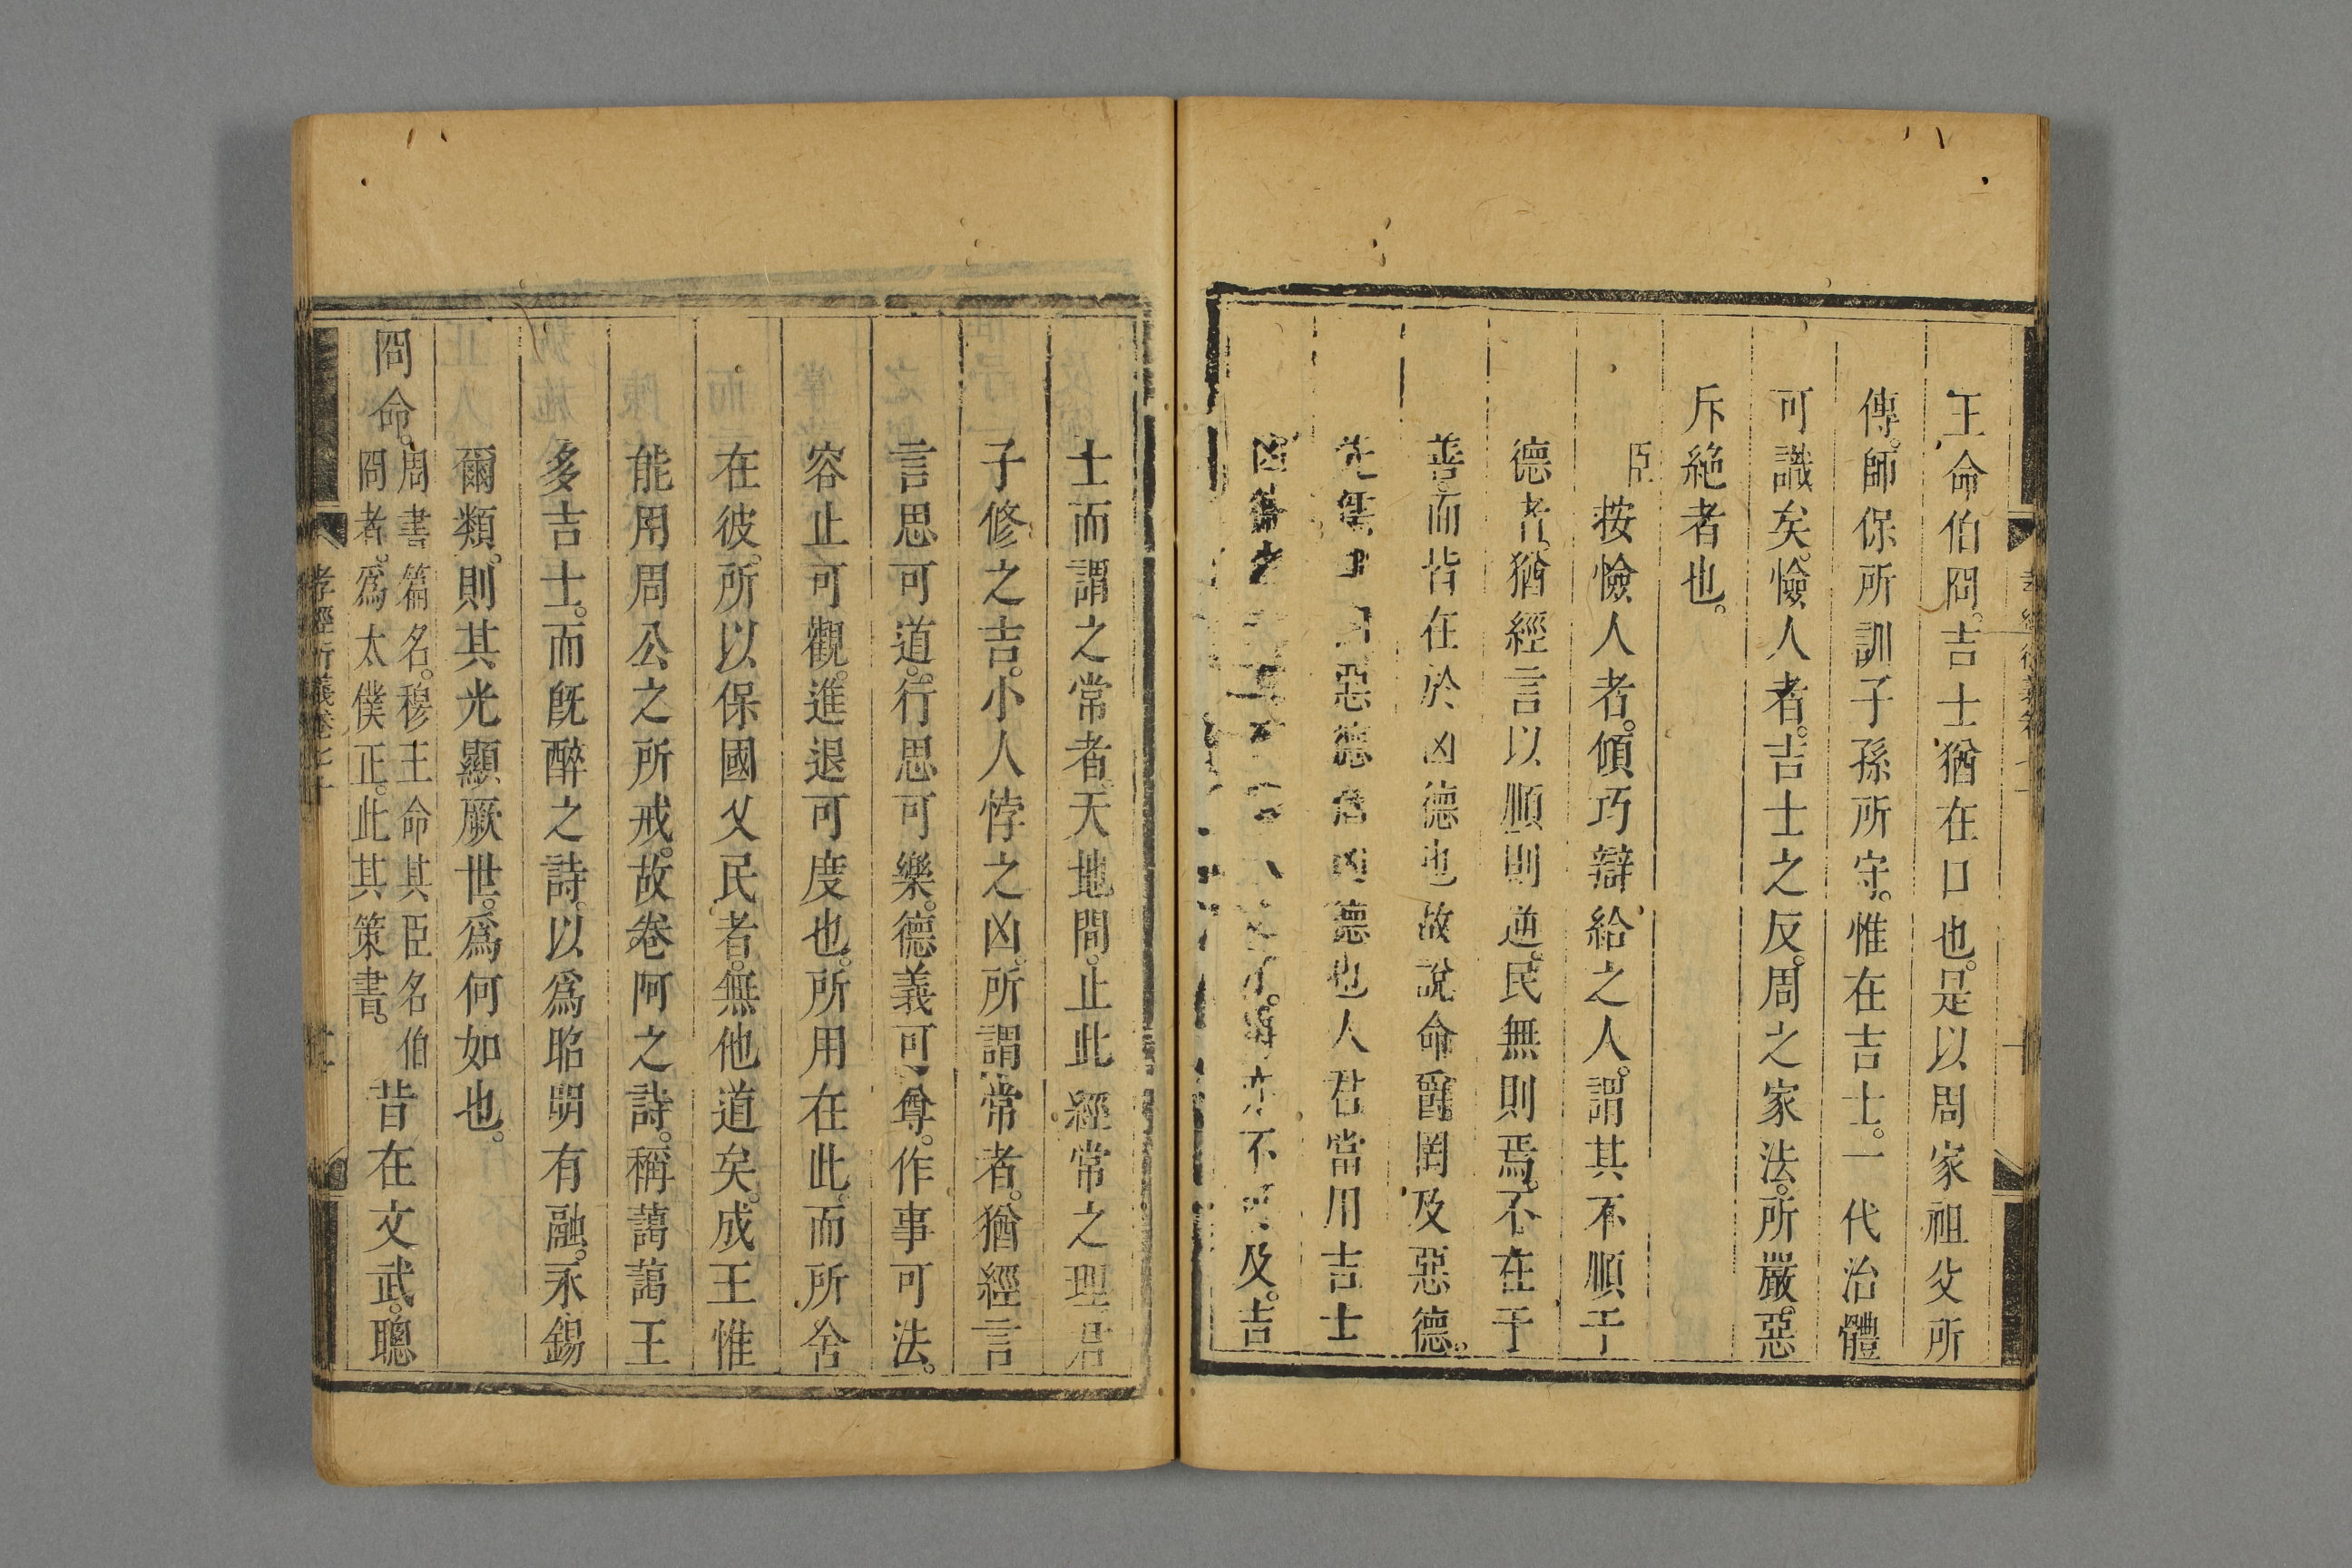 王命伯冏。吉士猶在口也。是以周家祖父所
傳。師保所訓子孫所守。惟在吉士。一代治體
可識矣。憸人者。吉士之反。周之家法。所嚴惡
斥絶者也。
臣按憸人者。傾巧辯給之人。謂其不順于
德者。猶經言以順則逆。民無則焉。不在于
善而皆在於凶德也故說命爵罔及惡德。
先儒 惡德 凶德也人君當用吉士
凶 者 不 及。吉
士而謂之常者天地間。止此經常之理君
子修之吉。小人悖之凶。所謂常者。猶經言
言思可道。行思可樂。德義可尊。作事可法。
容止可觀。進退可度也。所用在此。而所舍
在彼。所以保國乂民者。無他道矣。成王惟
能用周公之所戒。故卷阿之詩。稱藹藹王
多吉士。而旣醉之詩。以爲昭明有融。永錫
爾類。則其光顯厥世。爲何如也。
冏命。周書篇名。穆王命其臣名伯冏者。爲太僕正。此其策書。昔在文武。聰
孝經衍義卷七十